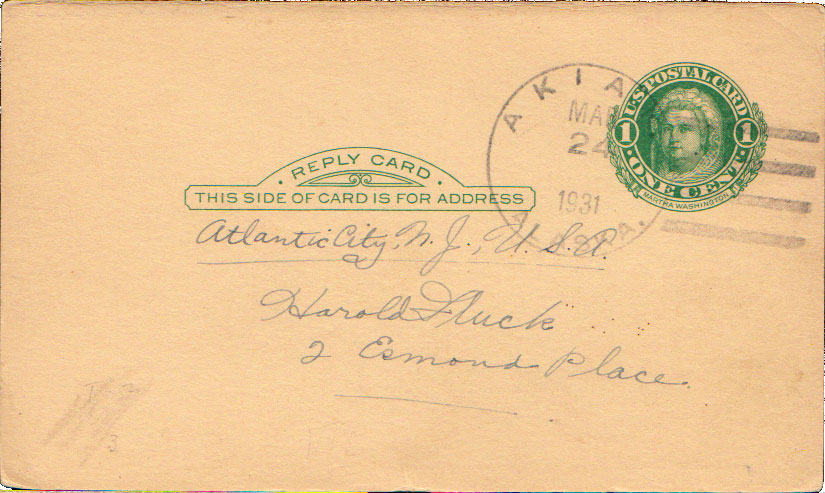 U.S. POSTAL CARD
1 1
ONE CENT
MARTHA WASHINGTON
AKIA
MAR
24
1931
REPLY CARD
THIS SIDE OF CARD IS FOR ADDRESS
Atlantic City, N. J., U. S. A.
Harold Fluck
2 Esmond Place.